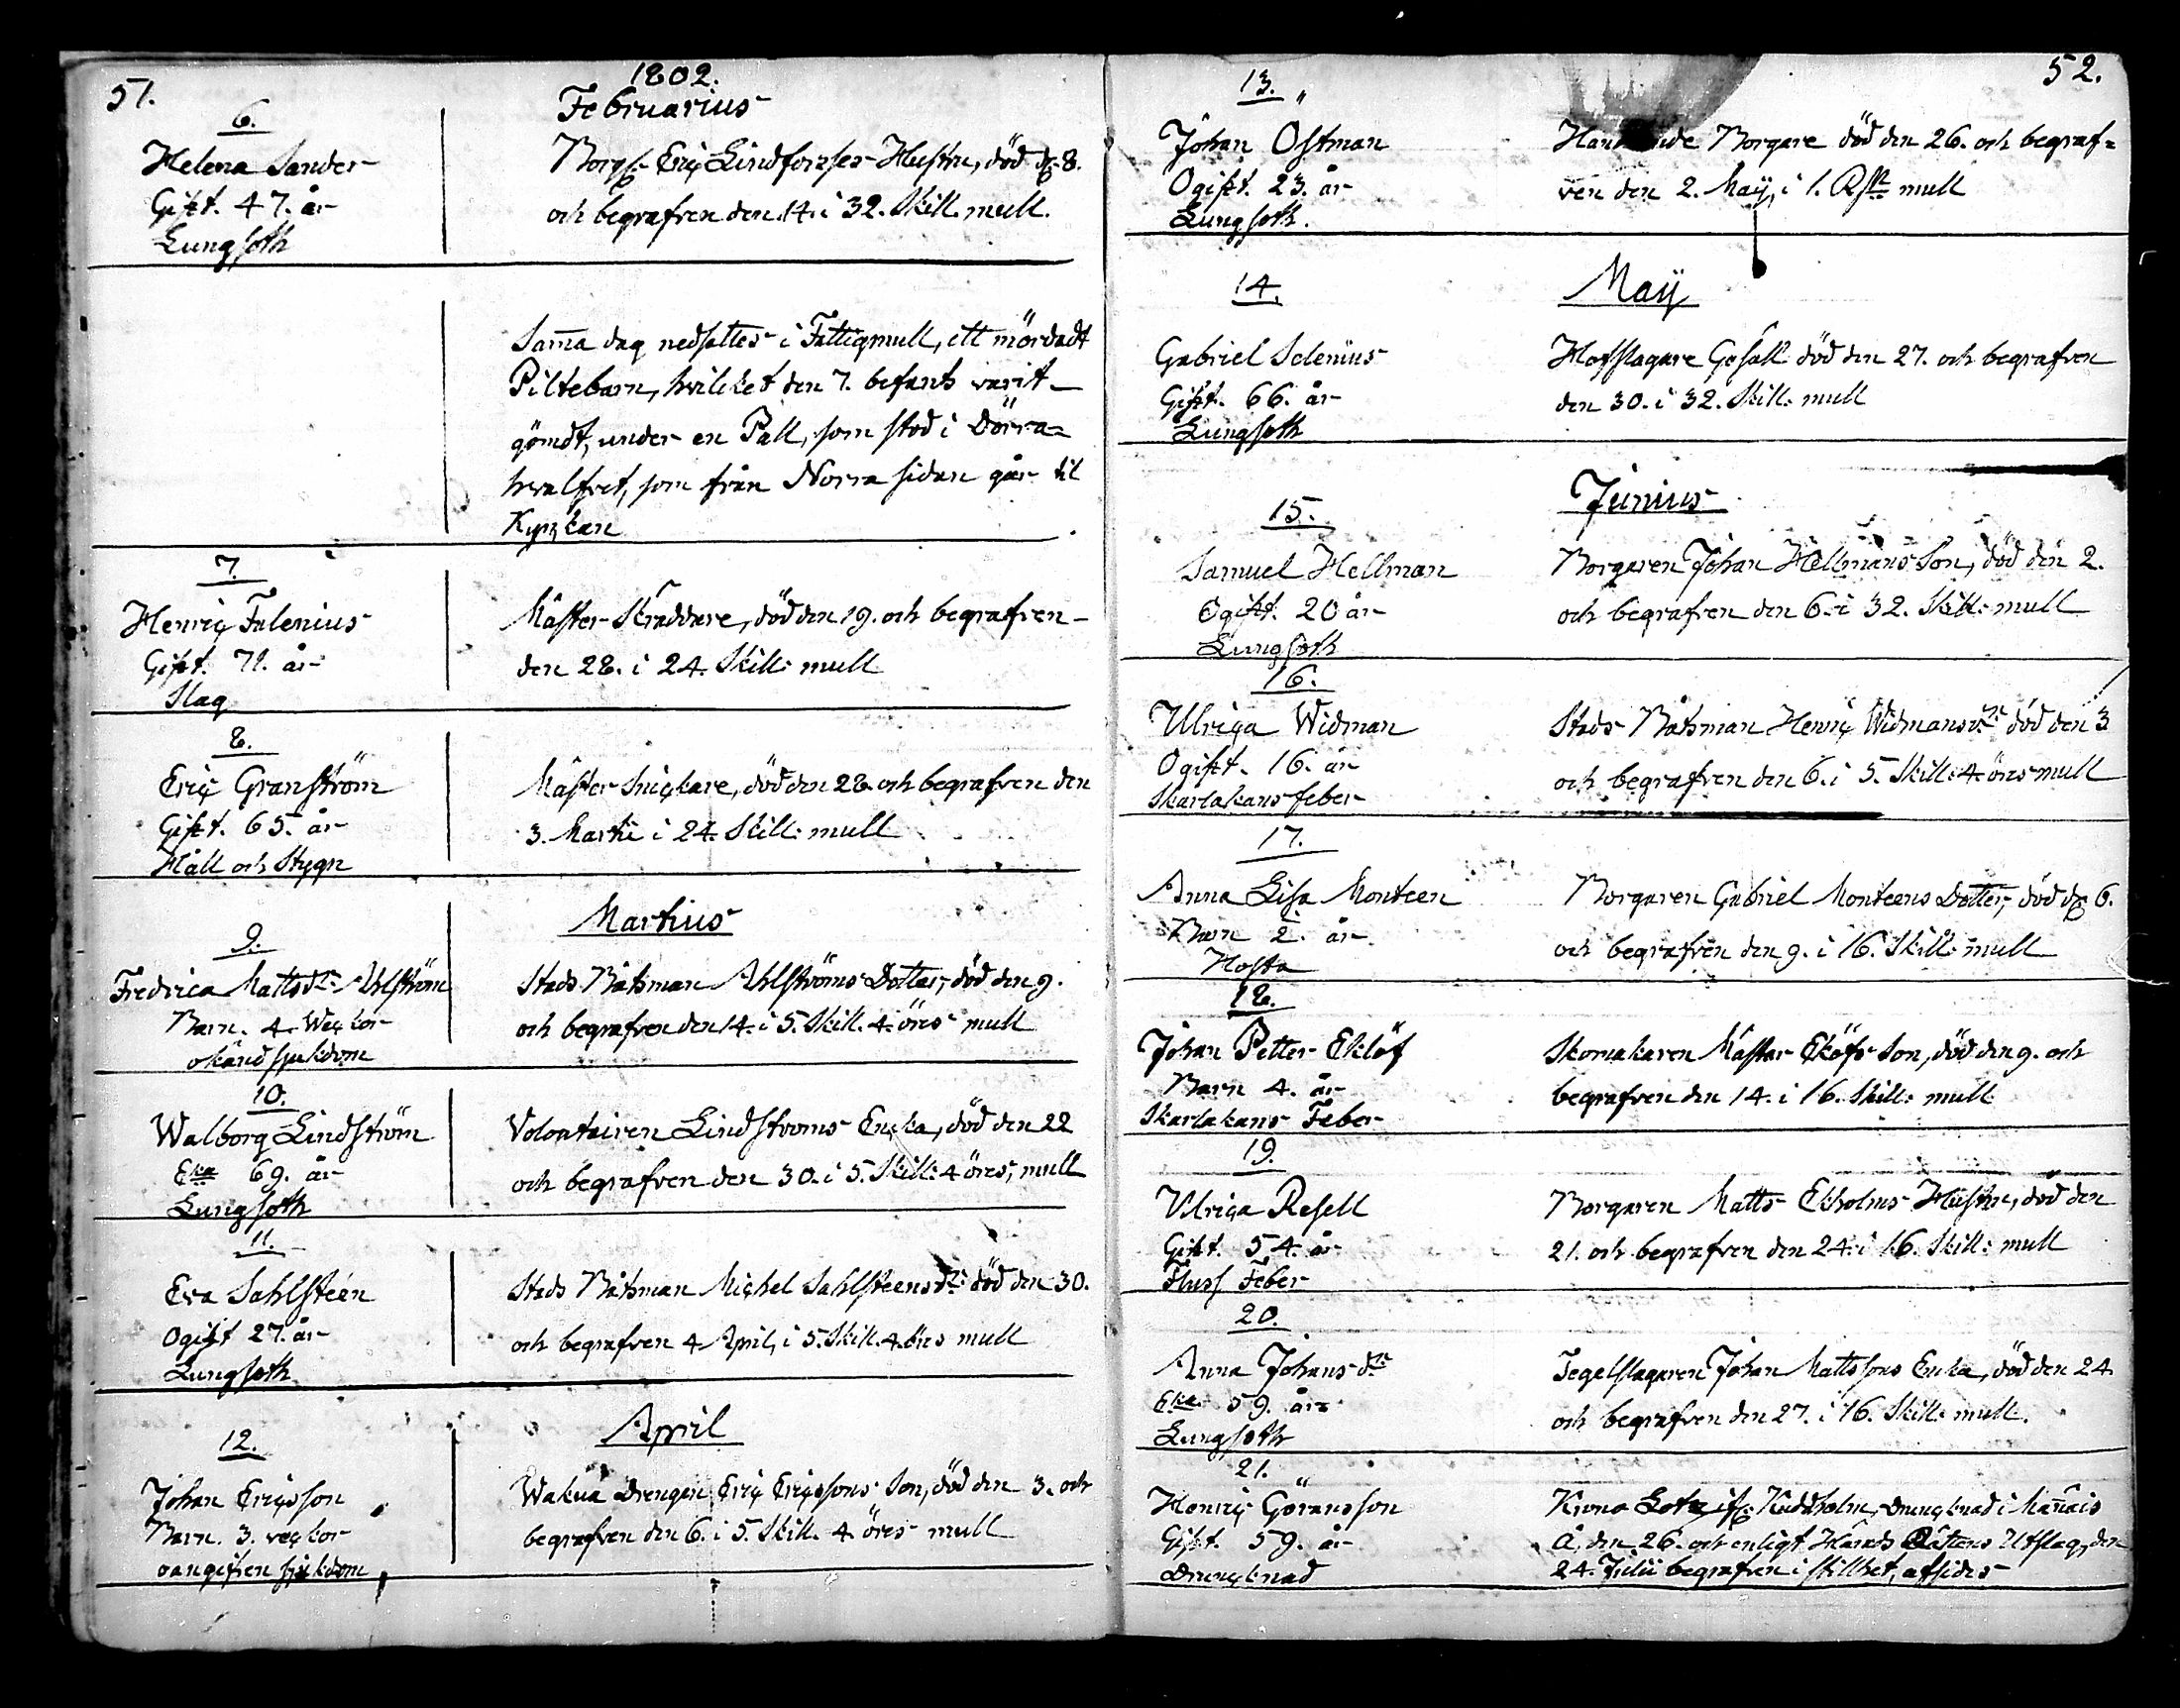 51.
1802.
Februarius
6.
Helena Sander
Gift. 47. år
Lungsoth
Borgr. Eriç Lindforsses Hustru, död d. 8.
och begrafven den 14. i 32. Skill. mull.
Samma dag nedsattes i Fattigmull, ett mördadt
Piltebarn, hvilcket den 7. befants varit
gömdt, under en Pall, som stod i Dörra=
hvalfvet, som från Norra sidan går til
Kyrkan
7.
Henriç Falenius
Gift. 71. år
Slag
Mäster Skräddare, död den 19. och begrafven
den 28. i 24. Skill: mull
8.
Eriç Granström
Gift. 65. år
Håll och Stygn
Mäster Sniçkare, död den 28. och begrafven den
3. Martii i 24. Skill: mull
Martius
9.
Fredrica Mattsdr. Ahlström
Barn. 4. Weçkor
okänd sjukdom
Stads Båtsman Ahlströms Dotter, död den 9.
och begrafven den 14. i 5. Skill. 4. öres mull
10.
Walborg Lindström
Eka 69. år
Lungsoth
Volontairen Lindstroms Encka, död den 22
och begrafven den 30. i 5. Skill: 4 öres, mull
11.
Eva Sahlstéen
Ogift 27. år
Lungsoth
Stads Båtsman Miçhel Sahlsteens dr. död den 30.
och begrafven 4 April, i 5. Skill. 4. öres mull
April
12.
Johan Eriçsson
Barn. 3. veçkor
oangifven sjukdom
Drengen Eriç Eriçssons Son, död den 3. och
begrafven den 6. i 5. Skill. 4. öres mull
52.
13.
Johan Östman
Ogift. 23. år
Lungsoth.
Handlande Borgare död den 26. och begraf=
ven den 2. Maÿ, i 1. Rdr mull
14.
Maÿ
Gabriel Selenius
Gift. 66. år
Lungsoth
Hofslagare Gesäll död den 27. och begrafven
den 30. i 32. Skill: mull
Junius
15.
Samuel Hellman
Ogift. 20 år
Lungsoth
Borgaren Johan Hellmans Son, död den 2.
och begrafven den 6. i 32. Skill: mull
16.
Ulriça Widman
Ogift. 16. år
Skarlakans feber
Stads Båtsman Henriç Widmans dr. död den 3
och begrafven den 6. i 5. Skill: 4. öres mull
17.
Anna Lisa Monteen
Barn 2. år
Hosta
Borgaren Gabriel Monteens Dotter, död d. 6.
och begrafven den 9. i 16. Skill: mull
18.
Johan Petter Eklöf
Barn 4. år
Skarlakans Feber
Skomakaren Mäster Eklöfs Son, död den 9. och
begrafven den 14. i 16. Skill: mull
19.
Ulriça Resell
Gift. 54. år
Fluss Feber
Borgaren Matts Ekholms Hustru, död den
21. och begrafven den 24. i 16. Skill: mull
20.
Anna Johans dr
Eka 59. år
Lungsoth
Tegelslagaren Johan Mattssons Enka, död den 24.
och begrafven den 27. i 16. Skill: mull.
21.
Henriç Göransson
Gift. 59. år
Drunçknad
Krono Lots Kuddholm, drunçknad i
Å, den 26. och enligt Härads Rättens Utslag, den
24. Julii begrafven i stillhet, afsides